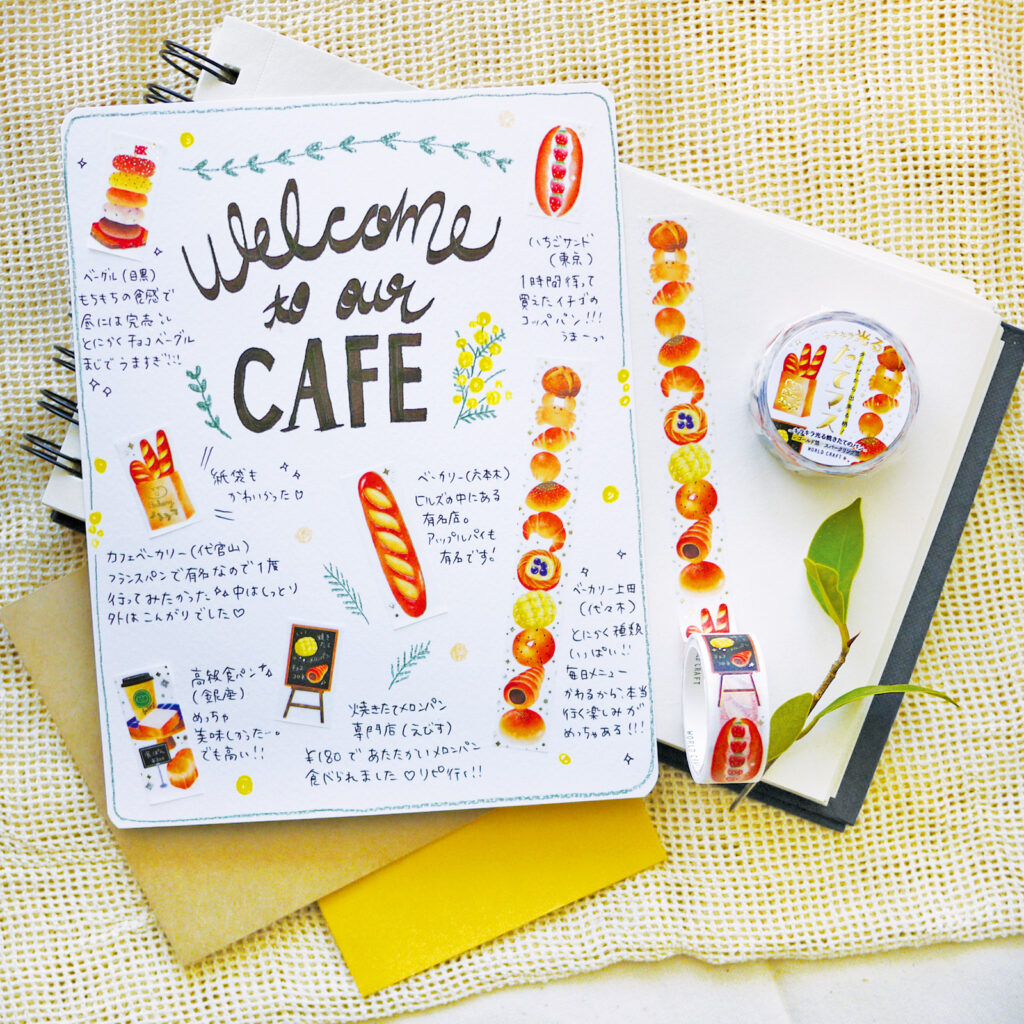 Welcome
to our
CAFE
ベーグル(目黒)
もちもちの食感で
昼には完売!!
とにかくチョコベーグル
まじでうますぎ!!!
いちごサンド
(東京)
1時間待って
買えたイチゴの
コッペパン!!!
うまーっ
紙袋も
かわいかった♡
ベーカリー(六本木)
ヒルズの中にある
有名店。
アップルパイも
有名です!
カフェベーカリー(代官山)
フランスパンで有名なので1度
行ってみたかった 中はしっとり
外はこんがりでした♡
ベーカリー上田
(代々木)
とにかく種類
いっぱい!!
毎日メニュー
かわるから、本当
行く楽しみが
めっちゃある!!!
高級食パン
(銀座)
めっちゃ
美味しかったー。
でも高い!!
焼きたてメロンパン
専門店(えびす)
¥180であたたかいメロンパン
食べられました♡リピ行い!!
キラキラ光る
たてマス
キラキラ光る焼きたてのパン
WORLD CRAFT
WORLD CRAFT